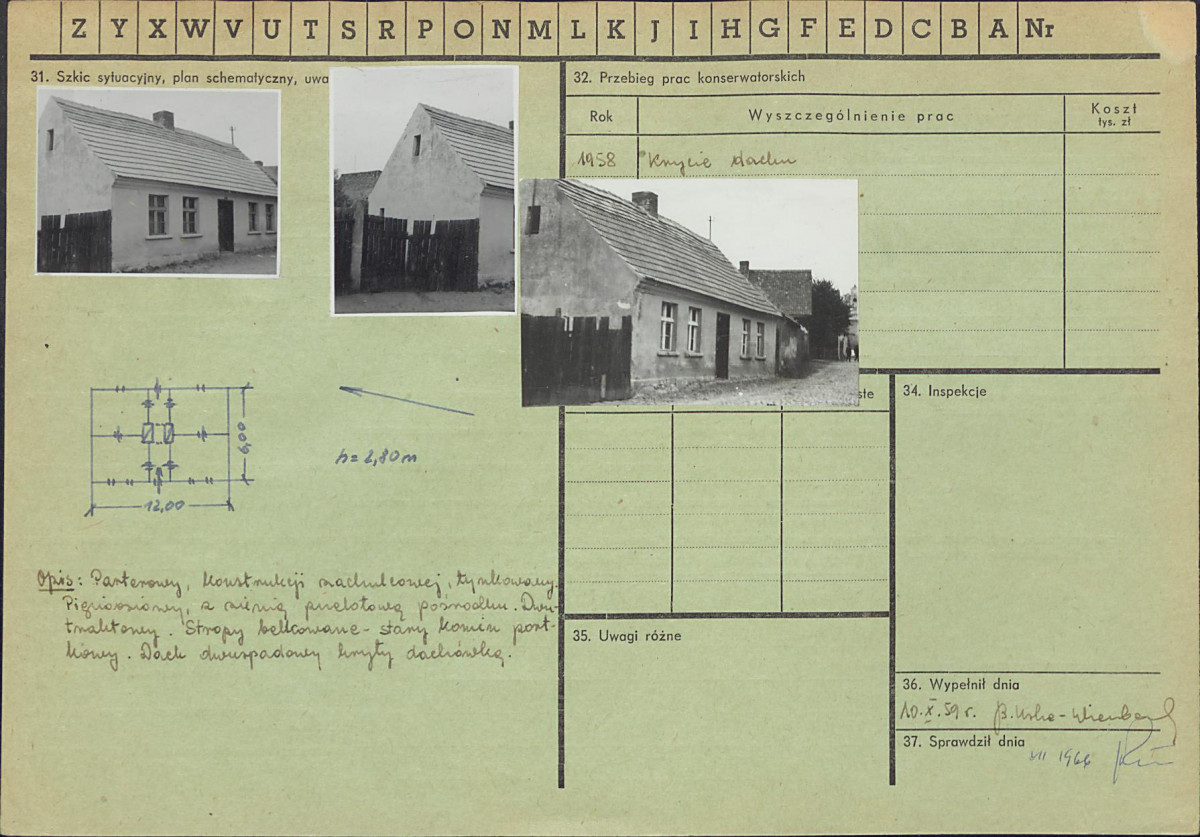 Z Y X W V U T S R P O N M L K J I H G F E D C B A Nr
31. Szkic sytuacyjny, plan schematyczny, uwa
32. Przebieg prac konserwatorskich
Rok
Wyszczególnienie prac
Koszt
tys. zł
1958 Krycie dachu
6,00
12,00
h = 2,80 m
Opis: Parterowy, konstrukcji , tynkowany.
z sienią przelotową pośrodku. Dwu-
traktowy. Stropy belkowane - stary komin port-
kowy. Dach dwuspadowy kryty dachówką.
ste
34. Inspekcje
35. Uwagi różne
36. Wypełnił dnia
10.X.59 r. B.
37. Sprawdził dnia
XII 1966